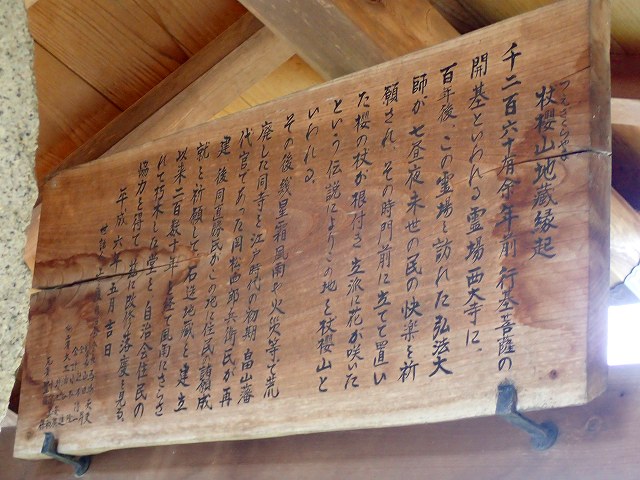 つえざくらやま
杖櫻山地蔵縁起
千二百六十有余年前行基菩薩の
開基といわれる霊場西大寺に、
百年後、この霊場を訪れた弘法大
師が、七昼夜、末世の民の快楽を祈
願され、その時門前に立てて置い
た櫻の杖が根付き、立派に花が咲いた
という伝説によりこの地を杖櫻山と
いわれる。
その後幾星霜風雨や火災等で荒
廃した同寺を江戸時代の初期、畠山藩
代官であった岡松四郎兵衛氏が再
建、後同直勝氏がこの地に住民請願成
就を祈願して、石造地蔵を建立
以来二百数十年を経て風雨にさらさ
れて朽木した堂を、自治会住民の
協力を得て、改修の落慶を見る。
平成六年五月吉日